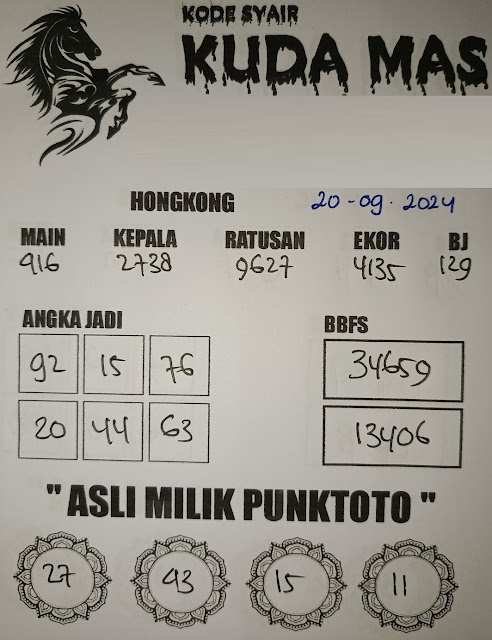 KODE SYAIR
KUDA MAS
HONGKONG 20-09-2024
MAIN KEPALA RATUSAN EKOR BJ
916 2738 9627 4135 129
ANGKA JADI BBFS
92 15 76 34659
20 44 63 13406
" ASLI MILIK PUNKTOTO "
27 93 15 11